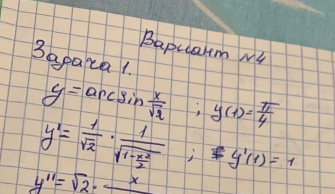 Вариант №4
Задача 1.
y = arcsin x/√2 ; y(1) = π/4
y' = 1/√2 · 1/√(1-x²/2) ; y'(1) = 1
y'' = √2 · x